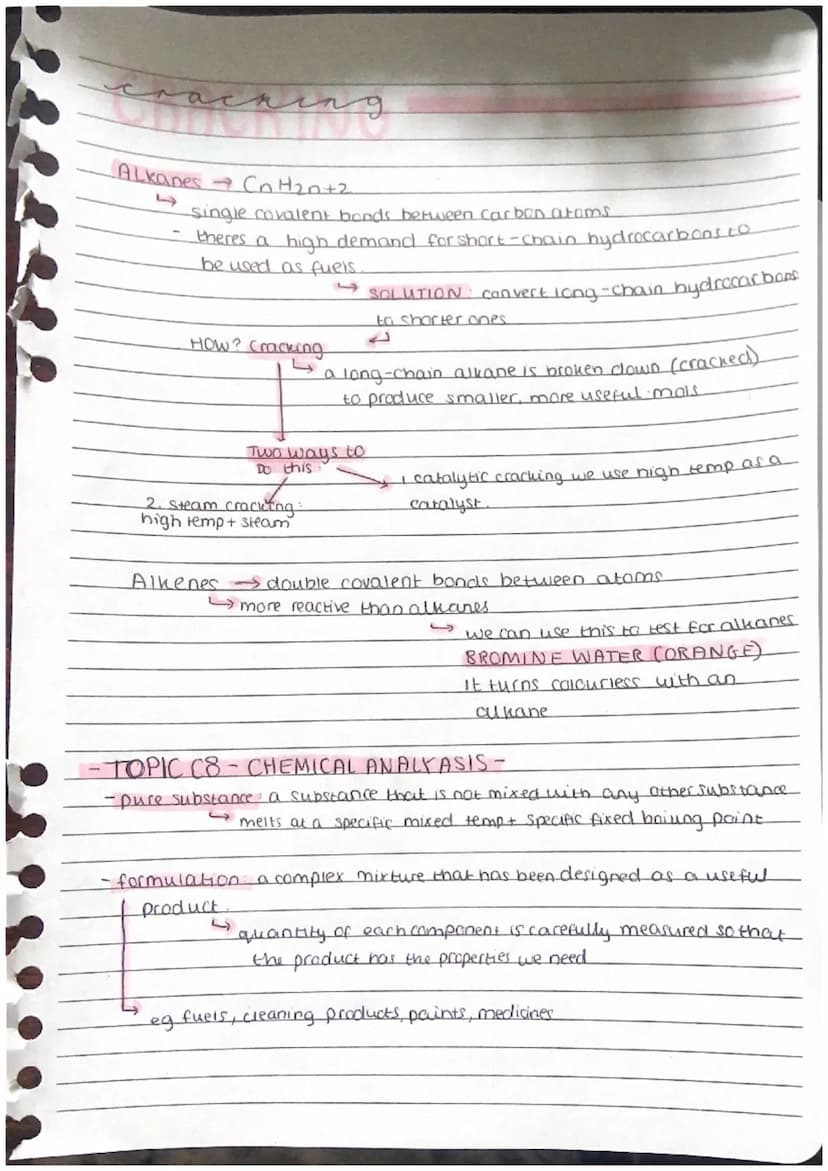 cracking
CRACKING
ALKanes → CnH2n+2
↳ single covalent bonds between carbon atoms
- theres a high demand for short-chain hydrocarbons to
be used as fuels.
↳ SOLUTION: convert long-chain hydrocarbons
to shorter ones
HOW? Cracking
↳ a long-chain alkane is broken down (cracked)
to produce smaller, more useful mols
Two ways to
DO this:
1 catalytic cracking we use high temp as a
catalyst.
2. steam cracking:
high temp + steam
Alkenes → double covalent bonds between atoms
↳ more reactive than alkanes
↳ we can use this to test for alkanes
BROMINE WATER (ORANGE)
It turns colourless with an
alkane
- TOPIC C8 - CHEMICAL ANALYASIS -
- pure substance: a substance that is not mixed with any other substance
↳ melts at a specific mixed temp + specific fixed boiling point
- formulation: a complex mixture that has been designed as a useful
product.
↳ quantity of each component is carefully measured so that
the product has the properties we need
↳ eg fuels, cleaning products, paints, medicines